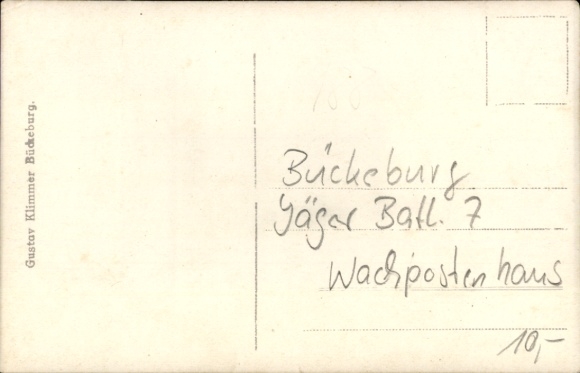 Gustav Klimmer Bückeburg.
Bückeburg
Jäger Batl. 7
Wachpostenhaus
10,-